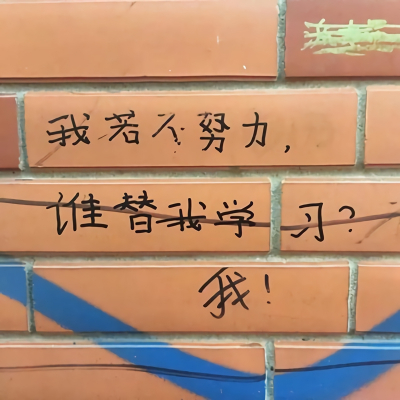 我若不努力,
谁替我学习?
我!